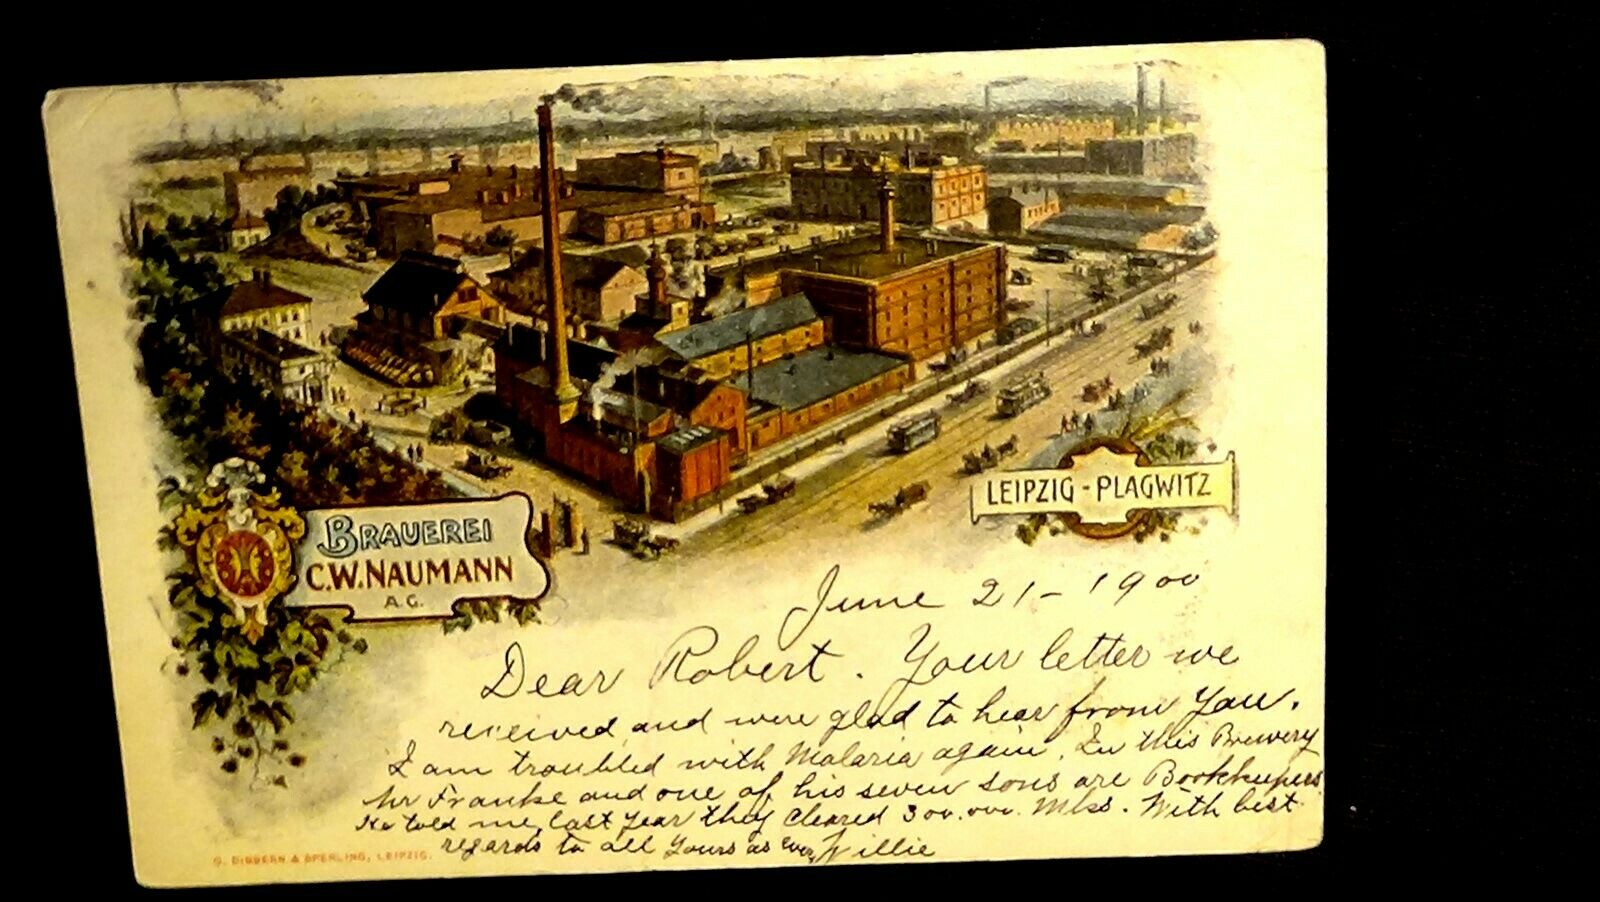 BRAUEREI
C.W. NAUMANN
A.G.
LEIPZIG - PLAGWITZ
June 21 - 1900
Dear Robert. Your letter we
received and were glad to hear from You.
I am troubled with Malaria again. In this Brewery
Mr Franke and one of his seven sons are Bookkeepers
He told me, last Year they cleared 300.000. Mks. With best
regards to all Yours as ever, Willie
G. DIBBERN & SPERLING, LEIPZIG.